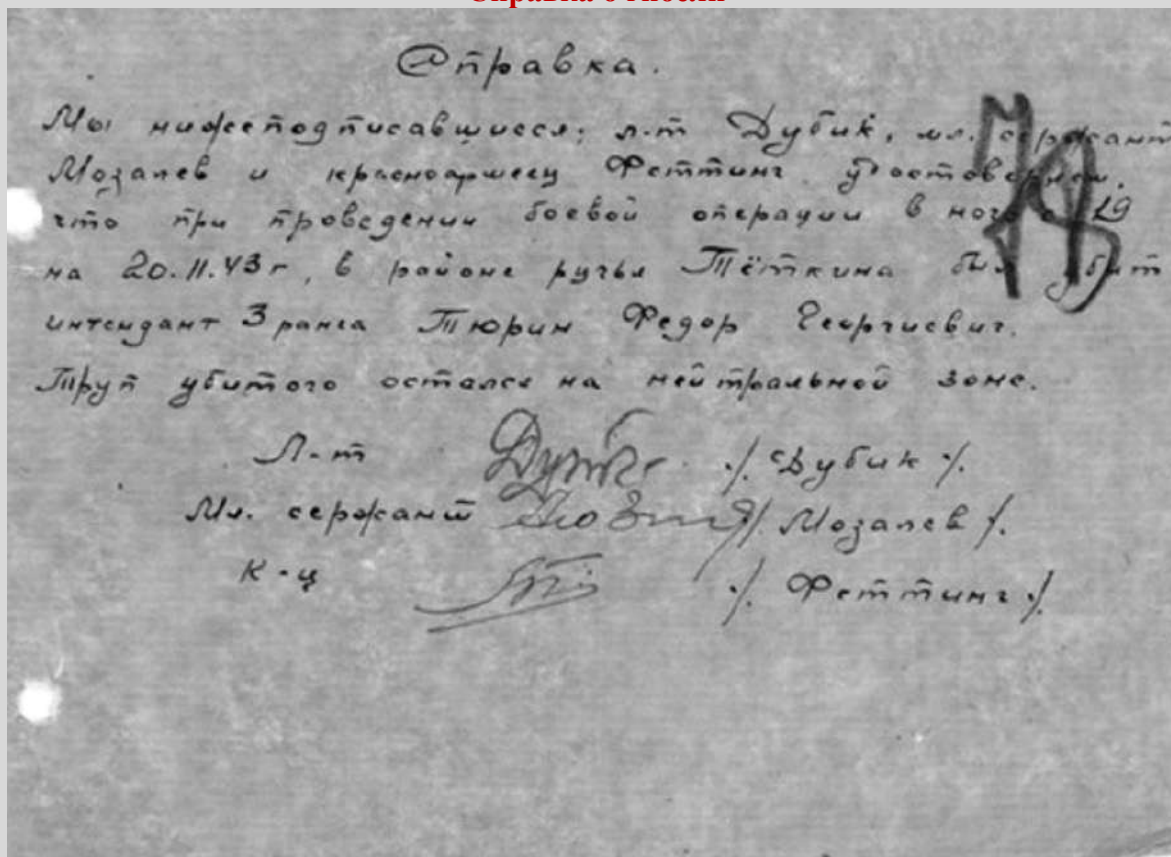 Справка.
Мы нижеподписавшиеся: л-т Дубик, мл. сержант
Мозалев и красноармеец Феттинг удостоверяем,
что при проведении боевой операции в ночь с 19
на 20.11.43 г, в районе ручья Тёткина был убит
интендант 3 ранга Тюрин Федор Георгиевич.
Труп убитого остался на нейтральной зоне.
Л-т ./. Дубик ./.
Мл. сержант ./. Мозалев ./.
К-ц ./. Феттинг ./.